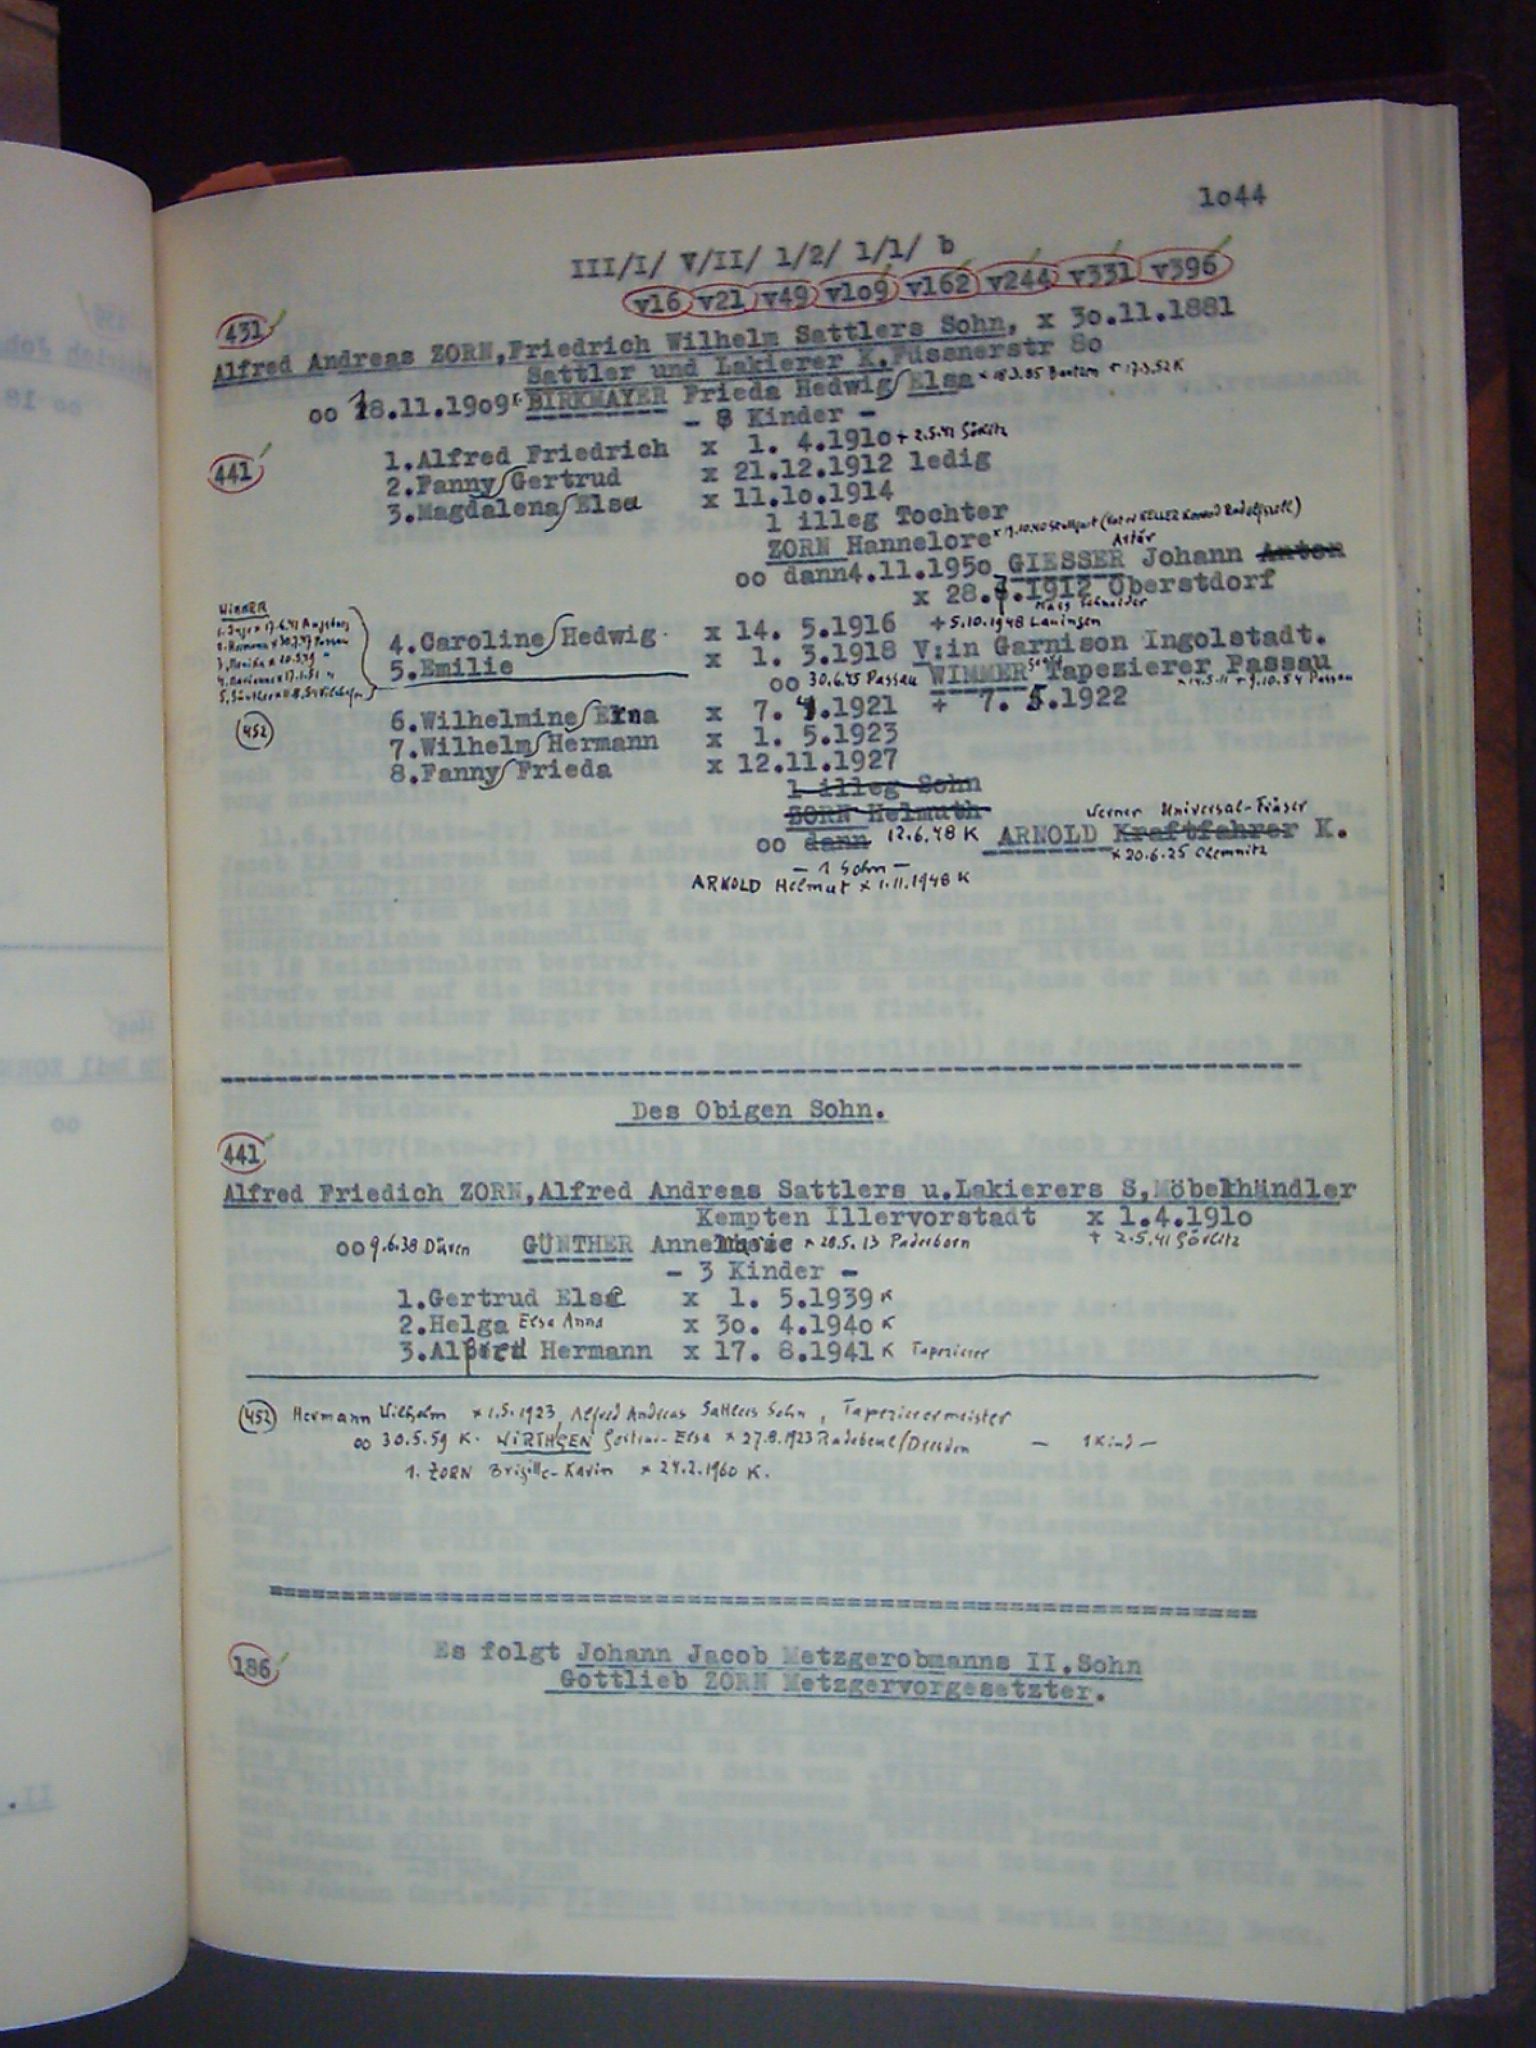 1o44
III/I/ V/II/ 1/2/ 1/1/ b
v16 v21 v49 v1o9 v162 v244 v331 v396
431
Alfred Andreas ZORN,Friedrich Wilhelm Sattlers Sohn, x 3o.11.1881
Sattler und Lakierer K.Füssnerstr 8o
oo 18.11.19o9 BIRKMAYER Frieda Hedwig Elsa x 18.3.85 Bautzen + 17.3.52 K
- 8 Kinder -
441
1.Alfred Friedrich x 1. 4.191o + 2.5.41 Görlitz
2.Fanny Gertrud x 21.12.1912 ledig
3.Magdalena Elsa x 11.1o.1914
1 illeg Tochter
ZORN Hannelore x 9.10.40 Stuttgart (Vater KELLER Konrad Radolfzell)
Artur
oo dann4.11.195o GIESSER Johann Anton
x 28.7.1912 Oberstdorf
4.Caroline Hedwig x 14. 5.1916 + 5.10.1948 Lauingen
5.Emilie x 1. 3.1918 V:in Garnison Ingolstadt.
oo 30.6.45 Passau WIMMER Tapezierer Passau
x 14.5.11 + 9.10.54 Passau
WIMMER
452
6.Wilhelmine Erna x 7. 4.1921 + 7. 5.1922
7.Wilhelm Hermann x 1. 5.1923
8.Fanny Frieda x 12.11.1927
1 illeg Sohn
ZORN Helmuth
Werner Universal-Fräser
oo dann 12.6.48 K ARNOLD Kraftfahrer K.
x 20.6.25 Chemnitz
- 1 Sohn -
ARNOLD Helmut x 1.11.1948 K
Des Obigen Sohn.
441
Alfred Friedich ZORN,Alfred Andreas Sattlers u.Lakierers S,Möbelhändler
Kempten Illervorstadt x 1.4.191o
oo 9.6.38 Düren GÜNTHER Annemarie x 28.5.13 Paderborn + 2.5.41 Görlitz
- 3 Kinder -
1.Gertrud Else x 1. 5.1939 K
2.Helga Elsa Anna x 3o. 4.194o K
3.Alfred Hermann x 17. 8.1941 K Tapezierer
452 Hermann Wilhelm x 1.5.1923, Alfred Andreas Sattlers Sohn, Tapezierermeister
oo 30.5.59 K. WIRTHGEN Elsa x 27.8.1923 Radebeul/Dresden - 1 Kind -
1. ZORN Brigitte-Karin x 24.2.1960 K.
186
Es folgt Johann Jacob Metzgerobmanns II.Sohn
Gottlieb ZORN Metzgervorgesetzter.